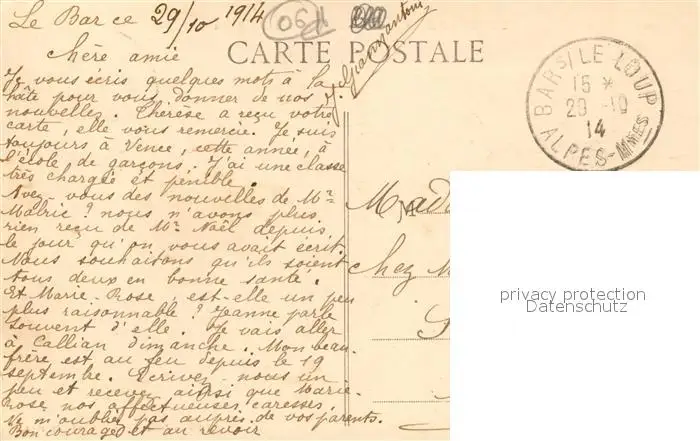 Le Bar ce 29/10 1914
06
CARTE POSTALE
BAR S/ LE LOUP
15 *
29 -10
14
ALPES-MMES
Chère amie
Je vous écris quelques mots à la
hâte pour vous donner de nos
nouvelles. Thérèse a reçu votre
carte, elle vous remercie. Je suis
toujours à Vence, cette année, à
l'école de garçons. J'ai une classe
très chargée et pénible.
Avez-vous des nouvelles de Mr
Malric ? nous n'avons plus
rien reçu de Me Noël depuis
le jour qu'on vous avait écrit.
Nous souhaitons qu'ils soient
tous deux en bonne santé.
Et Marie-Rose est-elle un peu
plus raisonnable ? Jeanne parle
souvent d'elle. Je vais aller
à Callian dimanche. Mon beau-
frère est au feu depuis le 19
septembre. Écrivez-nous un
peu et recevez ainsi que Marie-
Rose nos affectueuses caresses.
Ne m'oubliez pas auprès de vos parents.
Bon courage et au revoir
Mad
chez M
privacy protection
Datenschutz